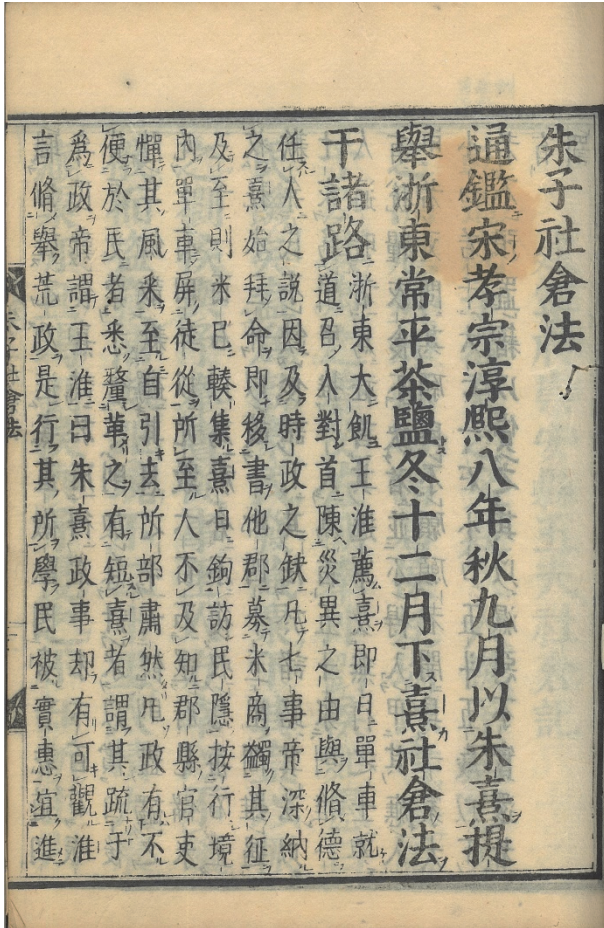 朱子社倉法
通鑑宋孝宗淳熙八年秋九月以朱熹提
舉浙東常平茶鹽冬十二月下熹社倉法
于諸路浙東大飢王淮薦熹即日單車就
道召入對首陳災異之由與脩德
任人之說因及時政之缺凡七事帝深納
之熹始拜命即移書他郡募米商蠲其征
及至則米巳輳集熹日鉤訪民隱按行境
內單車屏徒從所至人不及知郡縣官吏
憚其風采至自引去所部肅然凡政有不
便於民者悉釐革之有短熹者謂其疏于
為政帝謂王淮曰朱熹政事却有可觀淮
言脩舉荒政是行其所學民被實惠宜進
朱子社倉法